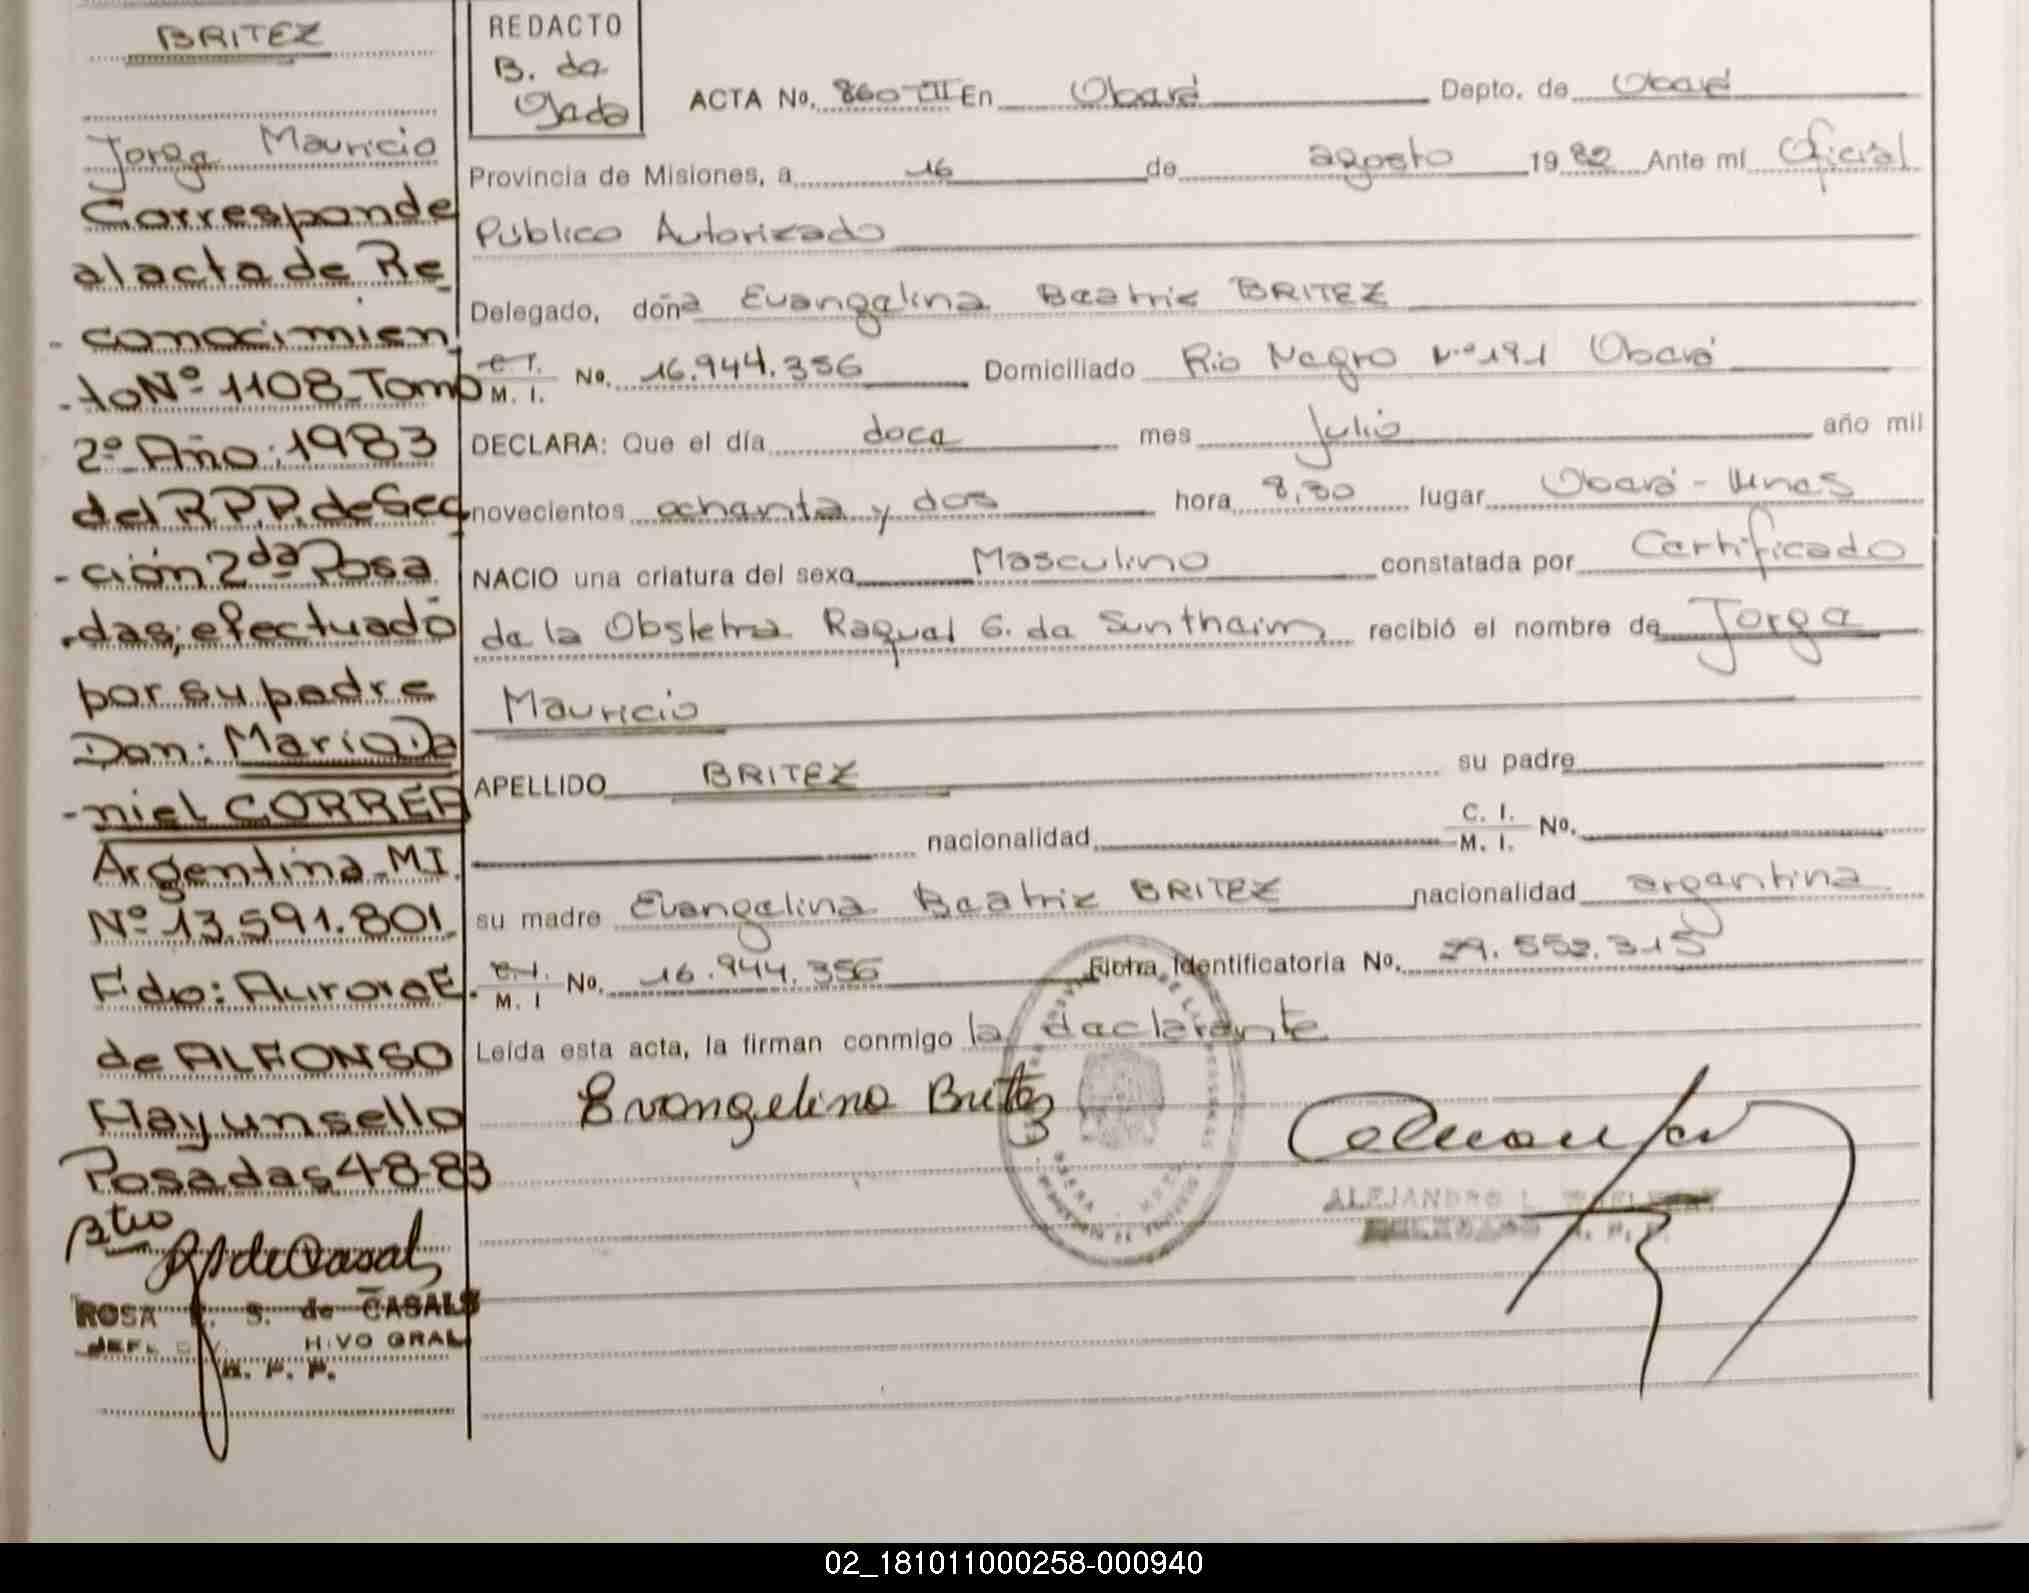 BRITEZ
Jorge Mauricio
Corresponde
al acta de Re
- conocimien
- to Nº 1108 Tomo
2º Año: 1983
del R.P.P. de Sec
- ción 2da Posa
- das; efectuado
por su padre
Don: Mario Da
- niel CORREA
Argentina. MI.
Nº 13.591.801
Fdo: Aurora E.
de ALFONSO
Hay un sello
Posadas 4-8-83
ROSA S. de CASALS
HIVO GRAL
R. P. P.
REDACTO
B. de
Ojeda
ACTA No. 860-III En Oberá Depto. de Oberá
Provincia de Misiones, a 16 de agosto 1982 Ante mí Oficial
Público Autorizado
Delegado, doña Evangelina Beatriz BRITEZ
C. I. / M. I. No. 16.944.356 Domiciliado Rio Negro Nº 191 Oberá
DECLARA: Que el día doce mes Julio año mil
novecientos ochenta y dos hora 8,30 lugar Oberá - Mnes
NACIO una criatura del sexo Masculino constatada por Certificado
de la Obstetra Raquel G. de Sunthaim recibió el nombre de Jorge
Mauricio
APELLIDO BRITEZ su padre
nacionalidad C. I. / M. I. No.
su madre Evangelina Beatriz BRITEZ nacionalidad argentina
C. I. / M. I No. 16.944.356 Ficha Identificatoria No. 29.552.315
Leída esta acta, la firman conmigo la declarante
Evangelina Britez
ALEJANDRO L.
02_181011000258-000940